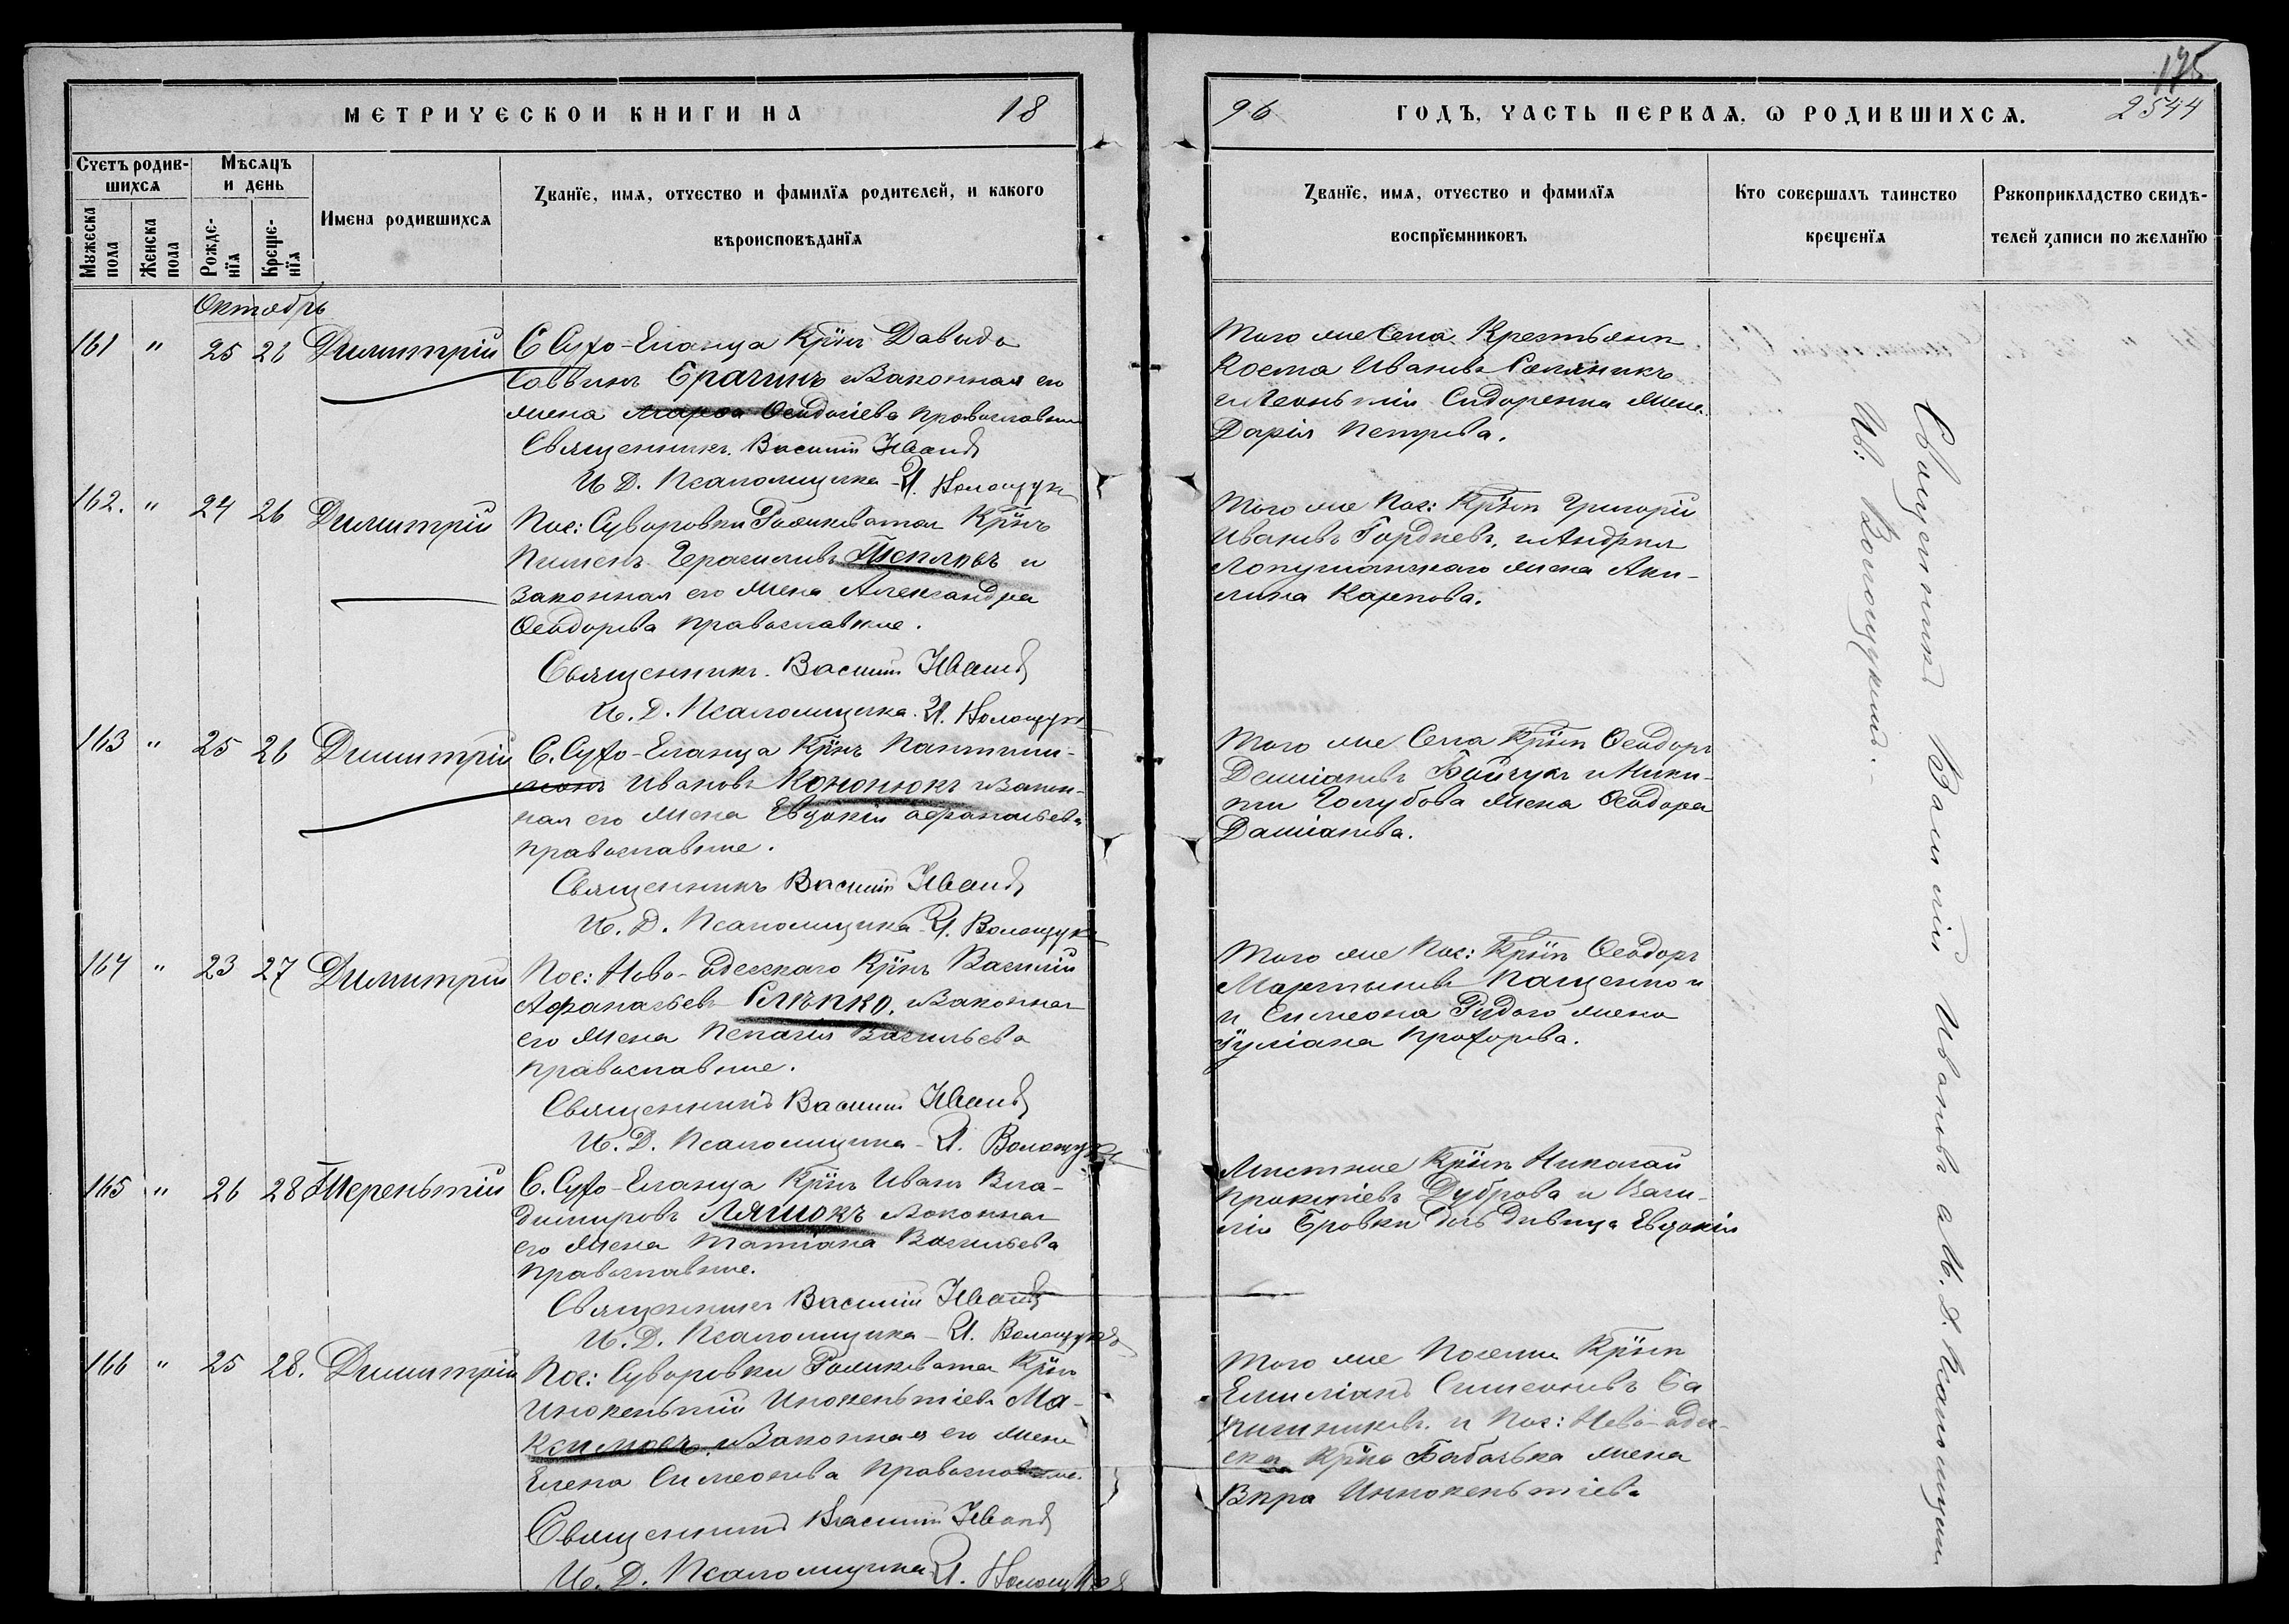 175
МЕТРИЧЕСКОИ КНИГИ НА 18
96 ГОДЪ, ЧАСТЬ ПЕРВАѦ, Ѡ РОДИВШИХСѦ. 2544
Счетъ родив-
шихсѧ
Мѣсѧцъ
и день
Мꙋжеска пола
Женска пола
Рожде-
нїѧ
Креще-
нїѧ
Имена родившихсѧ
Званїе, имѧ, отчество и фамилїѧ родителей, и какого
вѣроисповѣданїѧ
Званїе, имѧ, отчество и фамилїѧ
воспрїемниковъ
Кто совершалъ таинство
крещенїѧ
Рꙋкоприкладство свидѣ-
телей записи по желанїю
Октябрь
161 " 25 26 Димитрій
С Сухо-Еланца Крїнъ Давидъ
Саввинъ Брагинъ и Законная его
жена Ѳеодосіева православные
Священникъ Василій Ивановъ
И. Д. Псаломщика И. Волощукъ
Того же Села Крестьянъ
Косма Ивановъ
и Леонтія Сидоренка жена
Дарія Петрова.
162. " 24 26 Димитрій
Пос: Суворовки Крїнъ
Пименъ Герасимовъ Тепляковъ и
Законная его жена Александра
Ѳеодорова православные.
Священникъ Василій Ивановъ
И. Д. Псаломщика И. Волощукъ
Того же Пос: Крїнъ Григорій
Ивановъ Гордѣевъ, и Андрея
Лопушанскаго жена Аки-
лина Карпова.
163 " 25 26 Димитрій
С. Сухо-Еланца Крїнъ Пантели-
монъ Ивановъ Кононюкъ и Закон-
ная его жена Евдокія Афанасьева
православные.
Священникъ Василій Ивановъ
И. Д. Псаломщика И. Волощукъ
Того же Села Крїнъ Ѳеодоръ
Даміановъ Бойчукъ и Ники-
ты Голубова жена Ѳеодора
Даміанова.
164 " 23 27 Димитрій
Пос: Ново-Одесскаго Крїнъ Василій
Афанасьевъ Слѣпко, и Законная
его жена Пелагія Васильева
православные.
Священникъ Василій Ивановъ
И. Д. Псаломщика И. Волощукъ
Того же Пос: Крїнъ Ѳеодоръ
Мартыновъ Пащенко и
и Симеона Рудого жена
Іуліана Прохорова.
165 " 26 28 Терентій
С. Сухо-Еланца Крїнъ Иванъ Вла-
диміровъ Ляшокъ Законная
его жена Татіана Васильева
православные.
Священникъ Василій Ивановъ
И. Д. Псаломщика И. Волощукъ
Мѣстные Крїнъ Николай
Прокопіевъ Дуброва и Васи-
лія Бровки дочь дѣвица Евдокія
166 " 25 28. Димитрій
Пос: Суворовки Крїнъ
Инокентій Инокентіевъ Ма-
ксимовъ и Законная его жена
Елена Симеонова православные.
Священникъ Василій Ивановъ
И. Д. Псаломщика И. Волощукъ
Того же Поселка Крїнъ
Емиліанъ Симеоновъ
и Пос: Ново-Одес-
ска Крїна жена
Вѣра Иннокентіева
Священникъ Василій Ивановъ а И. Д. Псаломщика
Ив: Волощукъ.